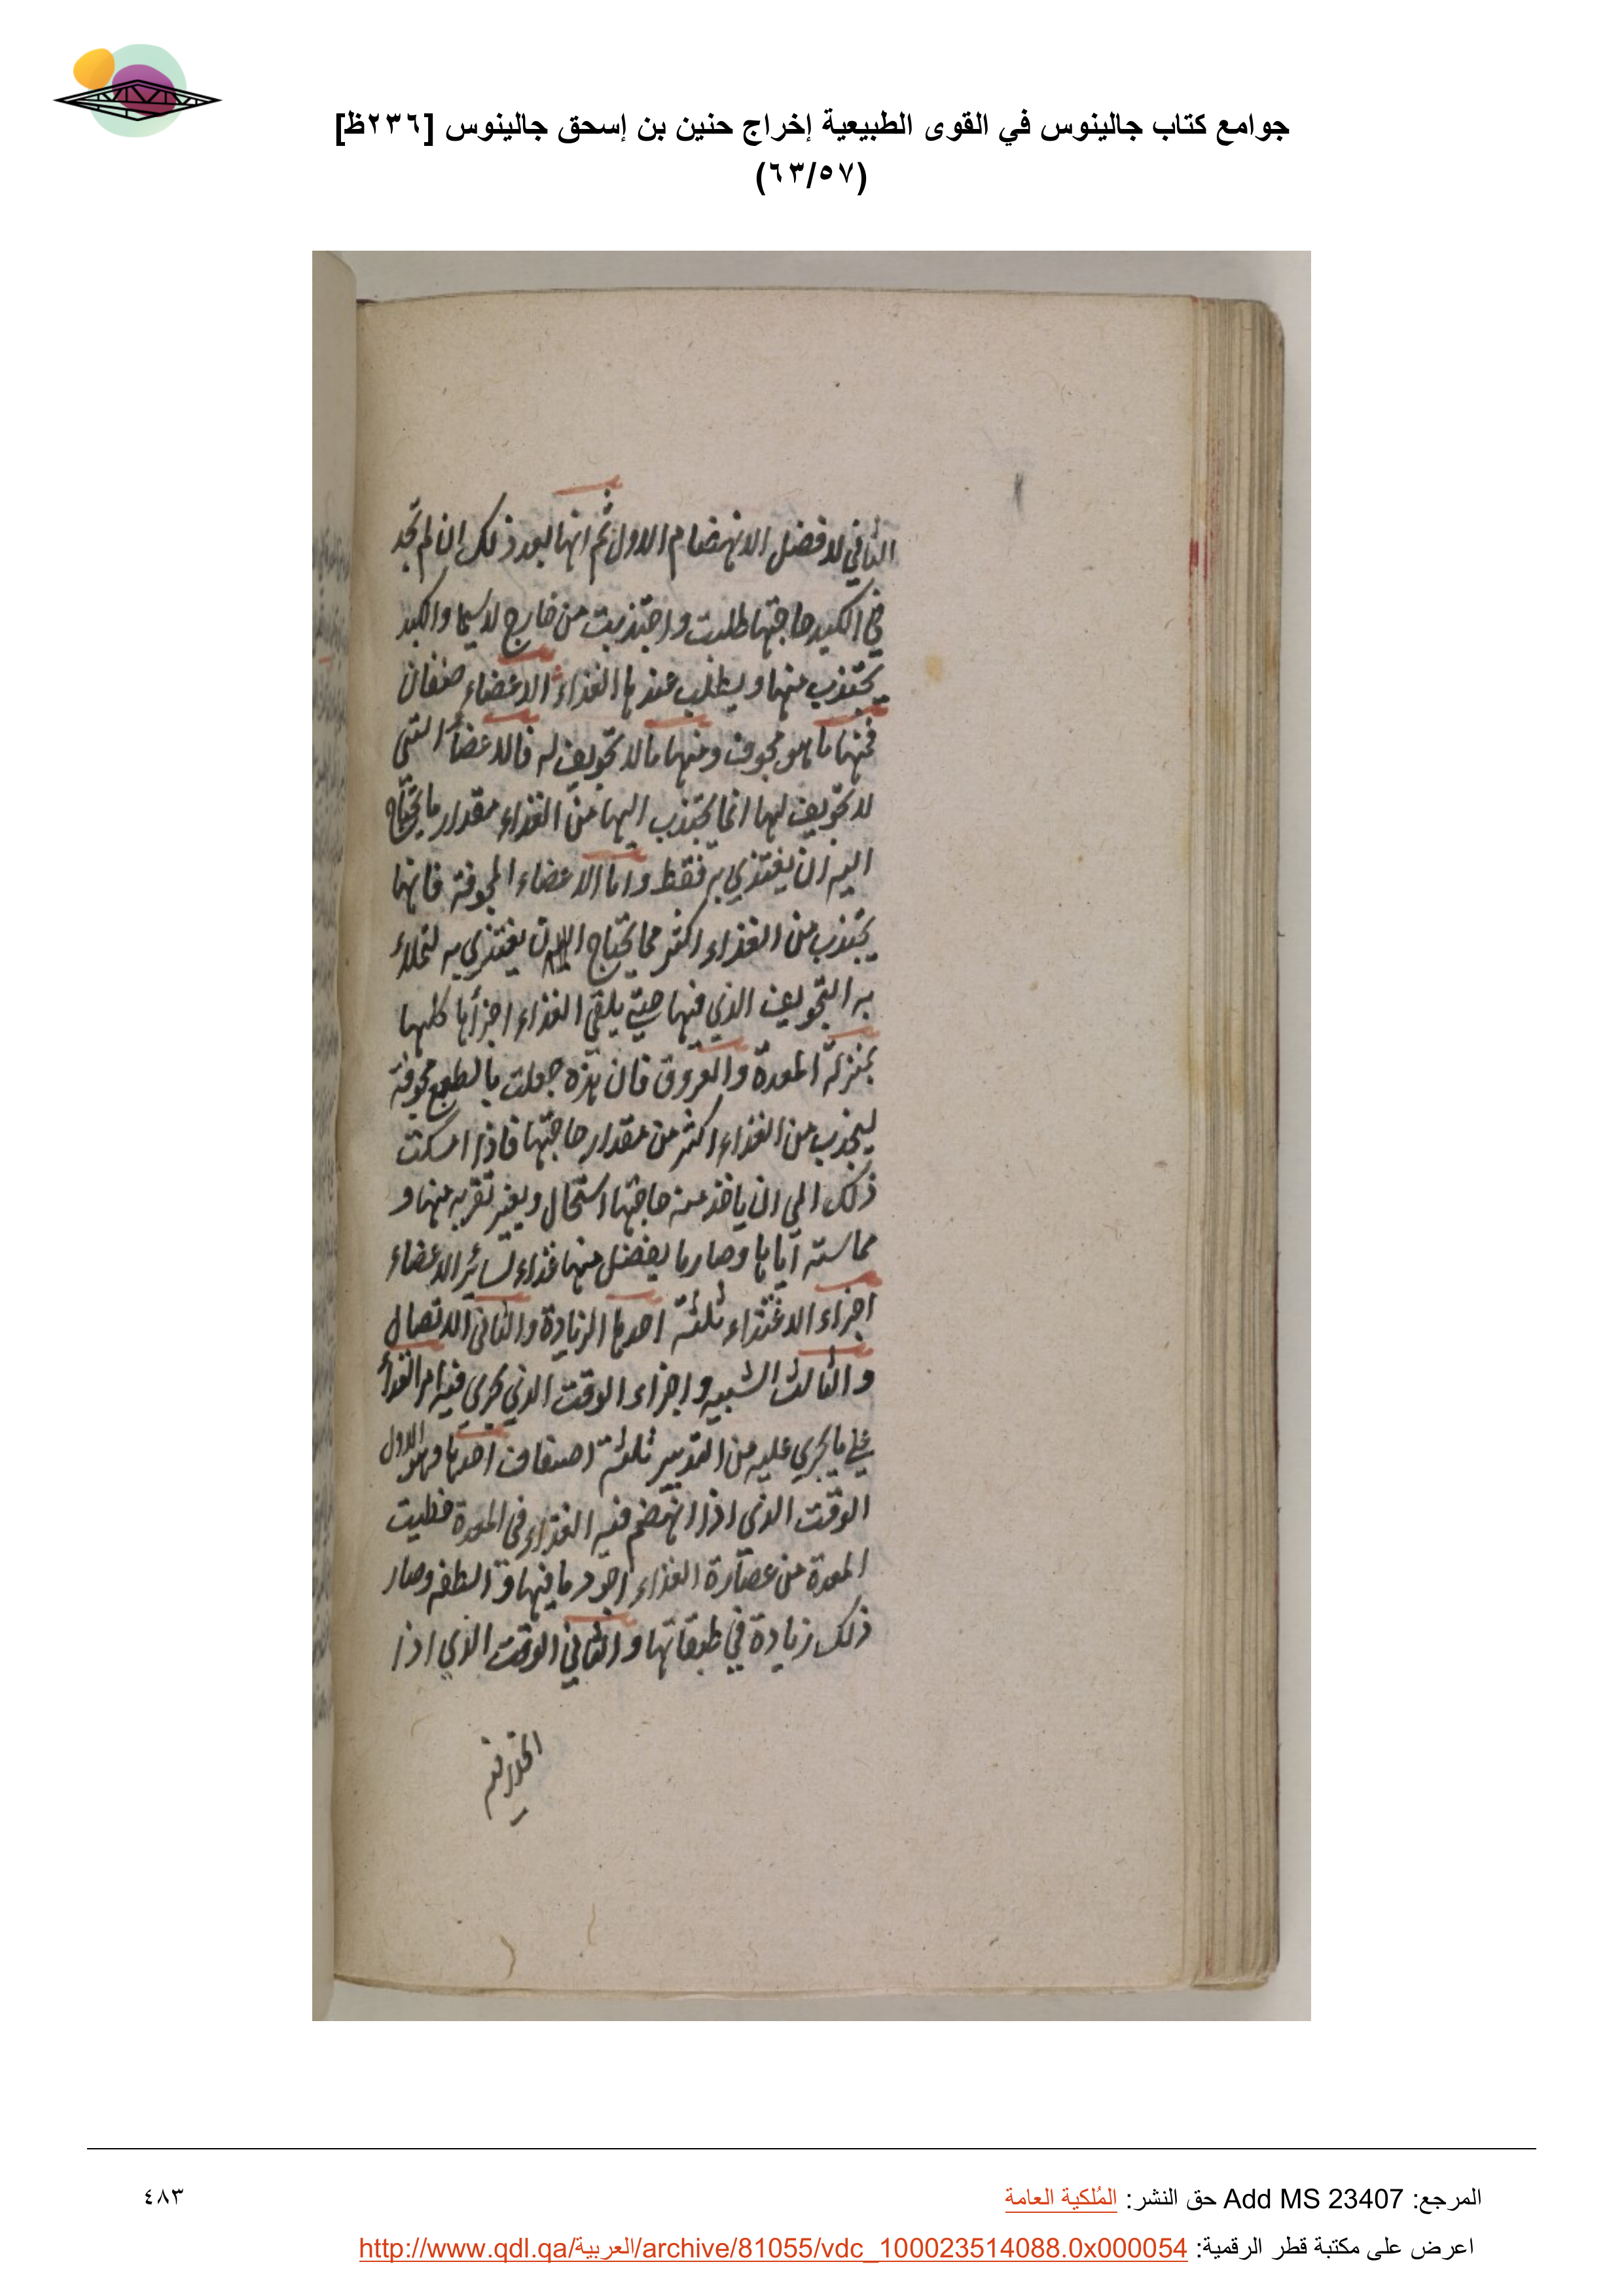 جوامع كتاب جالينوس في القوى الطبيعية إخراج حنين بن إسحق جالينوس [٢٣٦ظ]
(٦٣/٥٧)
الثاني لا فضل الانهضام الاول ثم انها بعد ذلك ان لم تجد
في الكبد حاجتها طلبت واجتذبت من خارج لا سيما والكبد
يجتذب منها ويطلب عندها الغذاء الاعضاء صنفان
فمنها ما هو مجوف ومنها ما لا تجويف له فالاعضاء التي
لا تجويف لها انما يجتذب اليها من الغذاء مقدار ما يحتاج
اليه ان يغتذي به فقط واما الاعضاء المجوفة فانها
يجتذب من الغذاء اكثر مما يحتاج ان يغتذي به لتملاء
به التجويف الذي فيها حتى يلقى الغذاء اجزاها كلها
بمنزلة المعدة والعروق فان هذه جعلت بالطبع مجوفة
ليجذب من الغذاء اكثر من مقدار حاجتها فاذا امسكت
ذلك الى ان ياخذ منه حاجتها استحال ويغير بقربه منها و
مماسته اياها وصار ما يفضل منها غذاء لسائر الاعضاء
اجزاء الاغتذاء ثلثة احدها الزيادة والثاني الاتصال
والثالث الشبيه واجزاء الوقت الذي يجرى فيه امر الغذاء
على ما يجرى عليه من التدبير ثلثة اصناف احدها وهو الاول
الوقت الذي اذا انهضم فيه الغذاء في المعدة
المعدة من عصارة الغذاء اجود ما فيها و الطفه وصار
ذلك زيادة في طبقاتها والثاني الوقت الذي اذا
المرجع: Add MS 23407 حق النشر: المُلكية العامة
٤٨٣
اعرض على مكتبة قطر الرقمية: http://www.qdl.qa/العربية/archive/81055/vdc_100023514088.0x000054